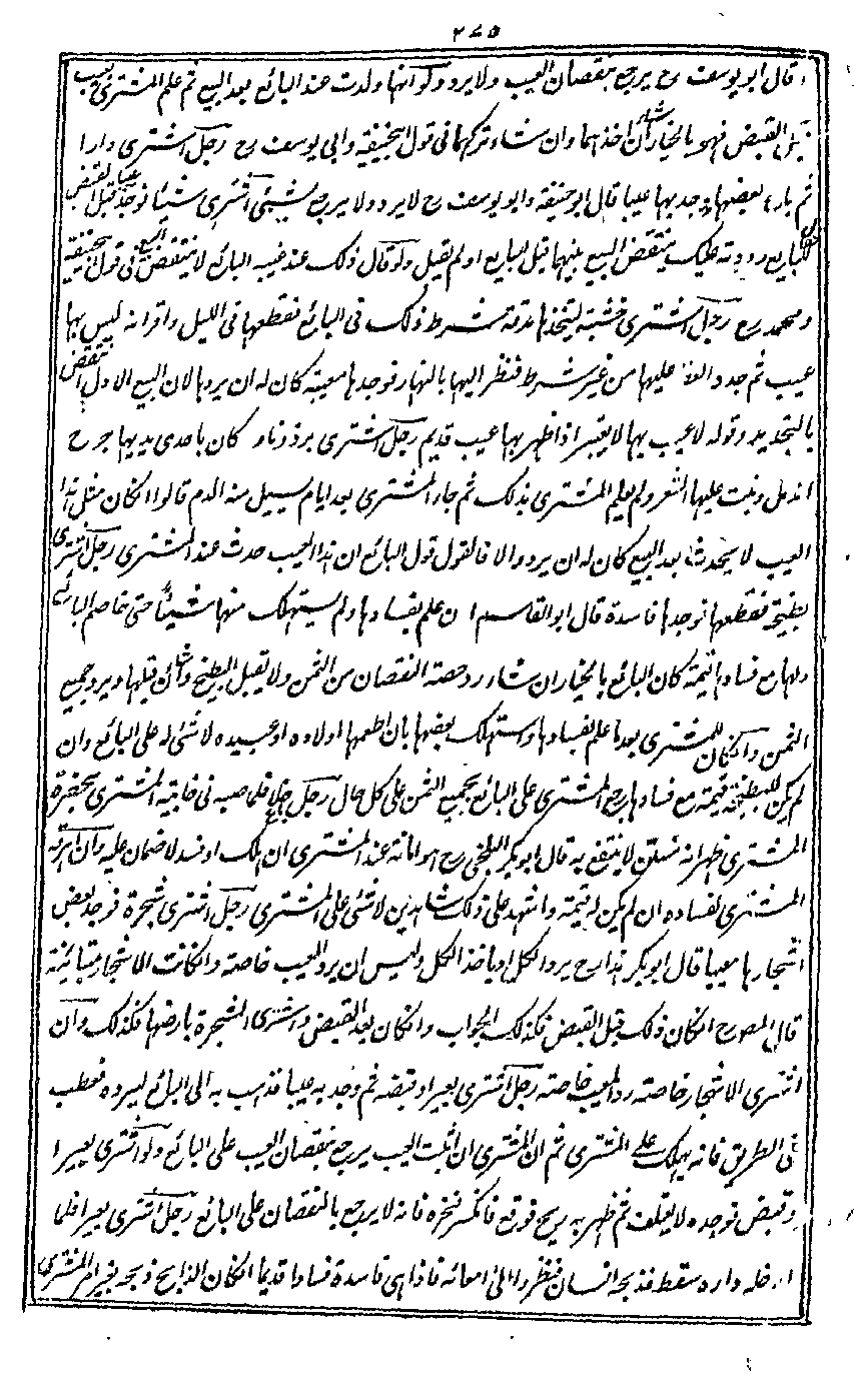 ٢٧٥
وقال ابو يوسف رح يرجع بنقصان العيب ولا يرد ولو انها ولدت عند البائع بعد البيع ثم علم المشترى بعيب
قبل القبض فهو بالخيار ان شاء اخذهما وان شاء تركهما فى قول ابيحنيفة وابى يوسف رح رجل اشترى دارا
ثم باع بعضها ووجد بها عيبا قال ابو حنيفة وابو يوسف رح لا يرد ولا يرجع بشيئ اشترى شيئا فوجد قبل القبض عيبا
فقال للبايع رددته عليك ينتقض البيع بينهما قبل البايع او لم يقبل ولو قال ذلك عند غيبة البائع لا ينتقض البيع فى قول ابيحنيفة
ومحمد رح رجل اشترى خشبة ليتخذها بشرط ذلك فى البائع فقطعها فى الليل واقر انه ليس بها
عيب ثم جدد العقد عليها من غير شرط فنظر اليها بالنهار فوجدها معيبة كان له ان يردها لان البيع الاول انتقض
بالتجديد وقوله لا عيب بها لا يعتبر اذا ظهر بها عيب قديم رجل اشترى برذونا وكان باحدى يديها جرح
اندمل ونبت عليها الشعر ولم يعلم المشترى بذلك ثم جاء المشترى بعد ايام يسيل منه الدم قالوا انكان مثل هذا
العيب لا يحدث بعد البيع كان له ان يرد والا فالقول قول البائع ان هذا العيب حدث عند المشترى رجل اشترى
بطيخة فقطعها فوجدها فاسدة قال ابو القاسم ان علم بفسادها ولم يستهلك منها شيئا حتى خاصم البائع
ولها مع فسادها قيمة كان البائع بالخيار ان شاء رد حصة النقصان من الثمن ولا يقبل البطيخ وان شاء قبلها ويرد جميع
الثمن وانكان المشترى بعد ما علم بفسادها واستهلك بعضها بان اطعمها اولاده او عبيده لا شئ له على البائع وان
لم يكن للبطيخة قيمة مع فسادها رجع المشترى على البائع بجميع الثمن على كل حال رجل باع خلا فلما صبه فى خابية المشترى بحضرة
المشترى ظهر انه منتن لا ينتفع به قال ابو بكر البلخى رح هو امانة عند المشترى ان هلك او فسد لا ضمان عليه وان اراقه
المشترى لفساده ان لم يكن له قيمة واشهد على ذلك شاهدين لا شئ على المشترى رجل اشترى شجرة فوجد بعض
اشجارها معيبا قال ابو بكر هذا رح يرد الكل او ياخذ الكل وليس له ان يرد المعيب خاصة وانكانت الاشجار متباينة
قال المص رح انكان ذلك قبل القبض فكذلك الجواب وانكان بعد القبض واشترى الشجرة بارضها فكذلك وان
اشترى الاشجار خاصة رد المعيب خاصة رجل اشترى بعيرا وقبضه ثم وجد به عيبا فذهب به الى البائع ليرده فعطب
فى الطريق فانه يهلك على المشترى ثم ان المشترى ان اثبت العيب يرجع بنقصان العيب على البائع ولو اشترى بعيرا
وقبض فوجده لا يعتلف ثم ظهر به ريح فوقع فانكسر فنحره فانه لا يرجع بالنقصان على البائع رجل اشترى بعيرا فلما
ادخله داره سقط فذبحه انسان فنظروا الى امعائه فاذا هى فاسدة فسادا قديما انكان الذابح ذبحه بغير امر المشترى